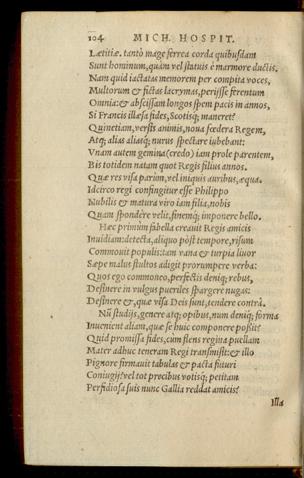 104 MICH. HOSPIT.
Lætitiæ. tantò mage ferrea corda quibusdam
Sunt hominum, quàm vel statuis è marmore ductis.
Nam quid iactatas memorem per compita voces,
Multorum & fictas lacrymas, periisse ferentum
Omnia: & abscissam longos spem pacis in annos,
Si Francis illæsa fides, Scotisq; maneret?
Quinetiam, versis animis, noua fœdera Regem,
Atq; alias aliasq; nurus spectare iubebant:
Vnam autem gemina (credo) iam prole parentem,
Bis totidem natam quot Regis filius annos.
Quæ res visa parùm, vel iniquis auribus, æqua.
Idcirco regi confingitur esse Philippo
Nubilis & matura viro iam filia, nobis
Quam spondêre velit, finemq; imponere bello.
Hæc primùm fabella creauit Regis amicis
Inuidiam: detecta, aliquo pòst tempore, risum
Commouit populis: tam vana & turpia liuor
Sæpe malus stultos adigit prorumpere verba:
Quos ego commoneo, perfectis denique rebus,
Desinere in vulgus pueriles spargere nugas:
Desinere &, quæ visa Deis sunt, tendere contrà.
Nū studijs, genere atq; opibus, num deniq; forma
Inuenient aliam, quæ se huic componere possit?
Quid promissa fides, cum flens regina puellam
Mater adhuc teneram Regi transmisit: & illo
Pignore firmauit tabulas & pacta futuri
Coniugij? vel tot precibus votisq; petitam
Perfidiosa suis nunc Gallia reddat amicis?
Illa